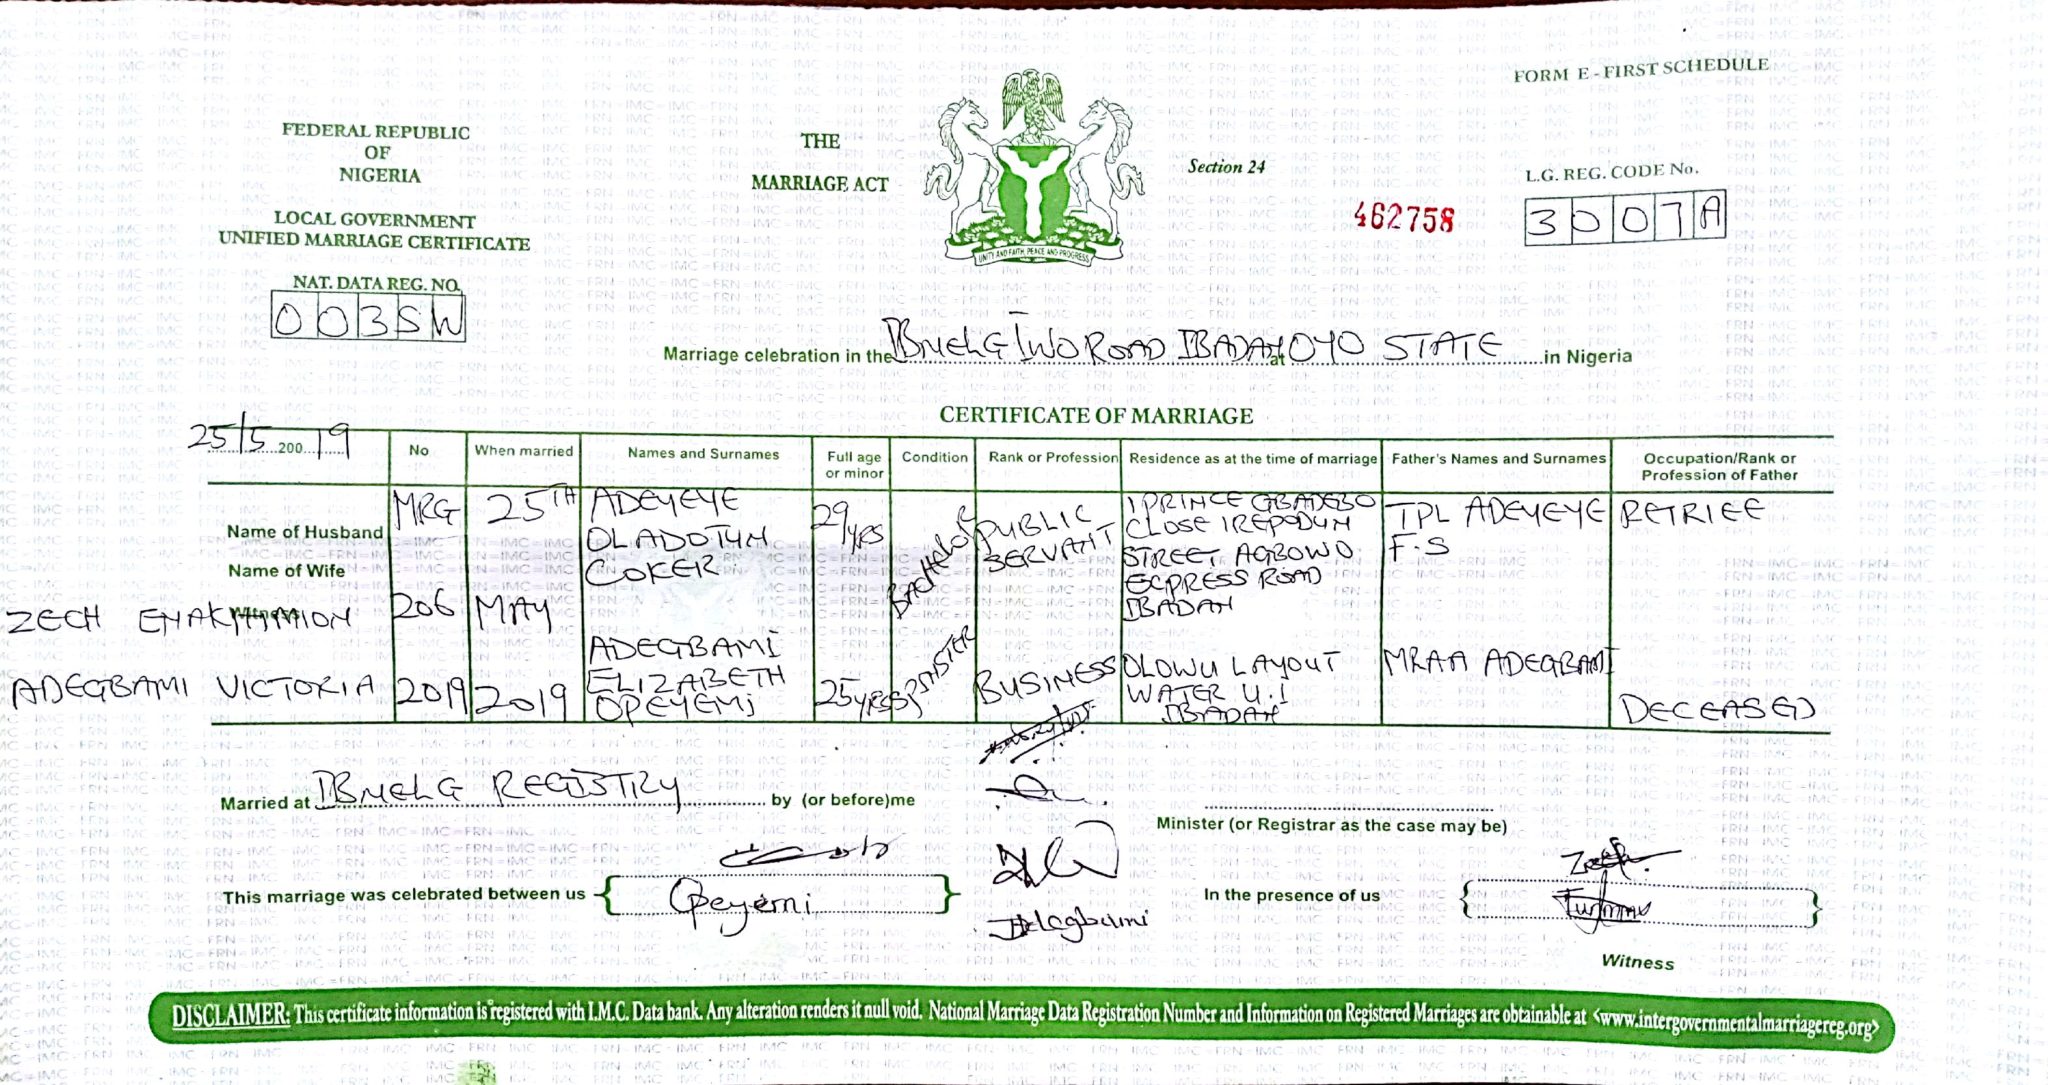 FORM E - FIRST SCHEDULE
FEDERAL REPUBLIC
OF
NIGERIA
LOCAL GOVERNMENT
UNIFIED MARRIAGE CERTIFICATE
NAT. DATA REG. NO.
003SW
THE
MARRIAGE ACT
UNITY AND FAITH, PEACE AND PROGRESS
Section 24
462758
L.G. REG. CODE No.
3007A
Marriage celebration in the IBNELG IWO ROAD IBADAN at OYO STATE in Nigeria
CERTIFICATE OF MARRIAGE
25/5 200 19
No
When married
Names and Surnames
Full age
or minor
Condition
Rank or Profession
Residence as at the time of marriage
Father's Names and Surnames
Occupation/Rank or
Profession of Father
Name of Husband
Name of Wife
Witness
ZECH
ADEGBAMI VICTORIA
MRG
206
2019
25TH
MAY
2019
ADEYEYE
OLADOTUN
COKER
29
YRS
BACHELOR
PUBLIC
SERVANT
1 PRINCE GBADEBO
CLOSE IREPODUN
STREET, AGBOWO
ECPRESS ROAD
IBADAN
TPL ADEYEYE
F.S
RETRIEE
ADEGBAMI
ELIZABETH
OPEYEMI
25YRS
SPINSTER
BUSINESS
OLOWU LAYOUT
WATER U.I
IBADAN
MRAA ADEGBAMI
DECEASED
Married at IBNELG REGISTRY by (or before)me
Minister (or Registrar as the case may be)
This marriage was celebrated between us
Opeyemi
Adegbami
In the presence of us
Witness
DISCLAIMER: This certificate information is registered with I.M.C. Data bank. Any alteration renders it null void. National Marriage Data Registration Number and Information on Registered Marriages are obtainable at <www.intergovernmentalmarriagereg.org>